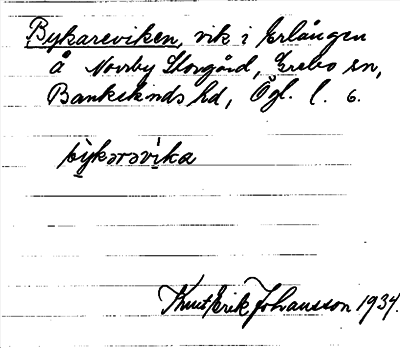 Bykareviken, vik i Erlången
å Norrby Storgård, Grebo sn,
Bankekinds hd, Ögl. l. 6.
bỳkarəvìka
Knut Erik Johansson 1934.